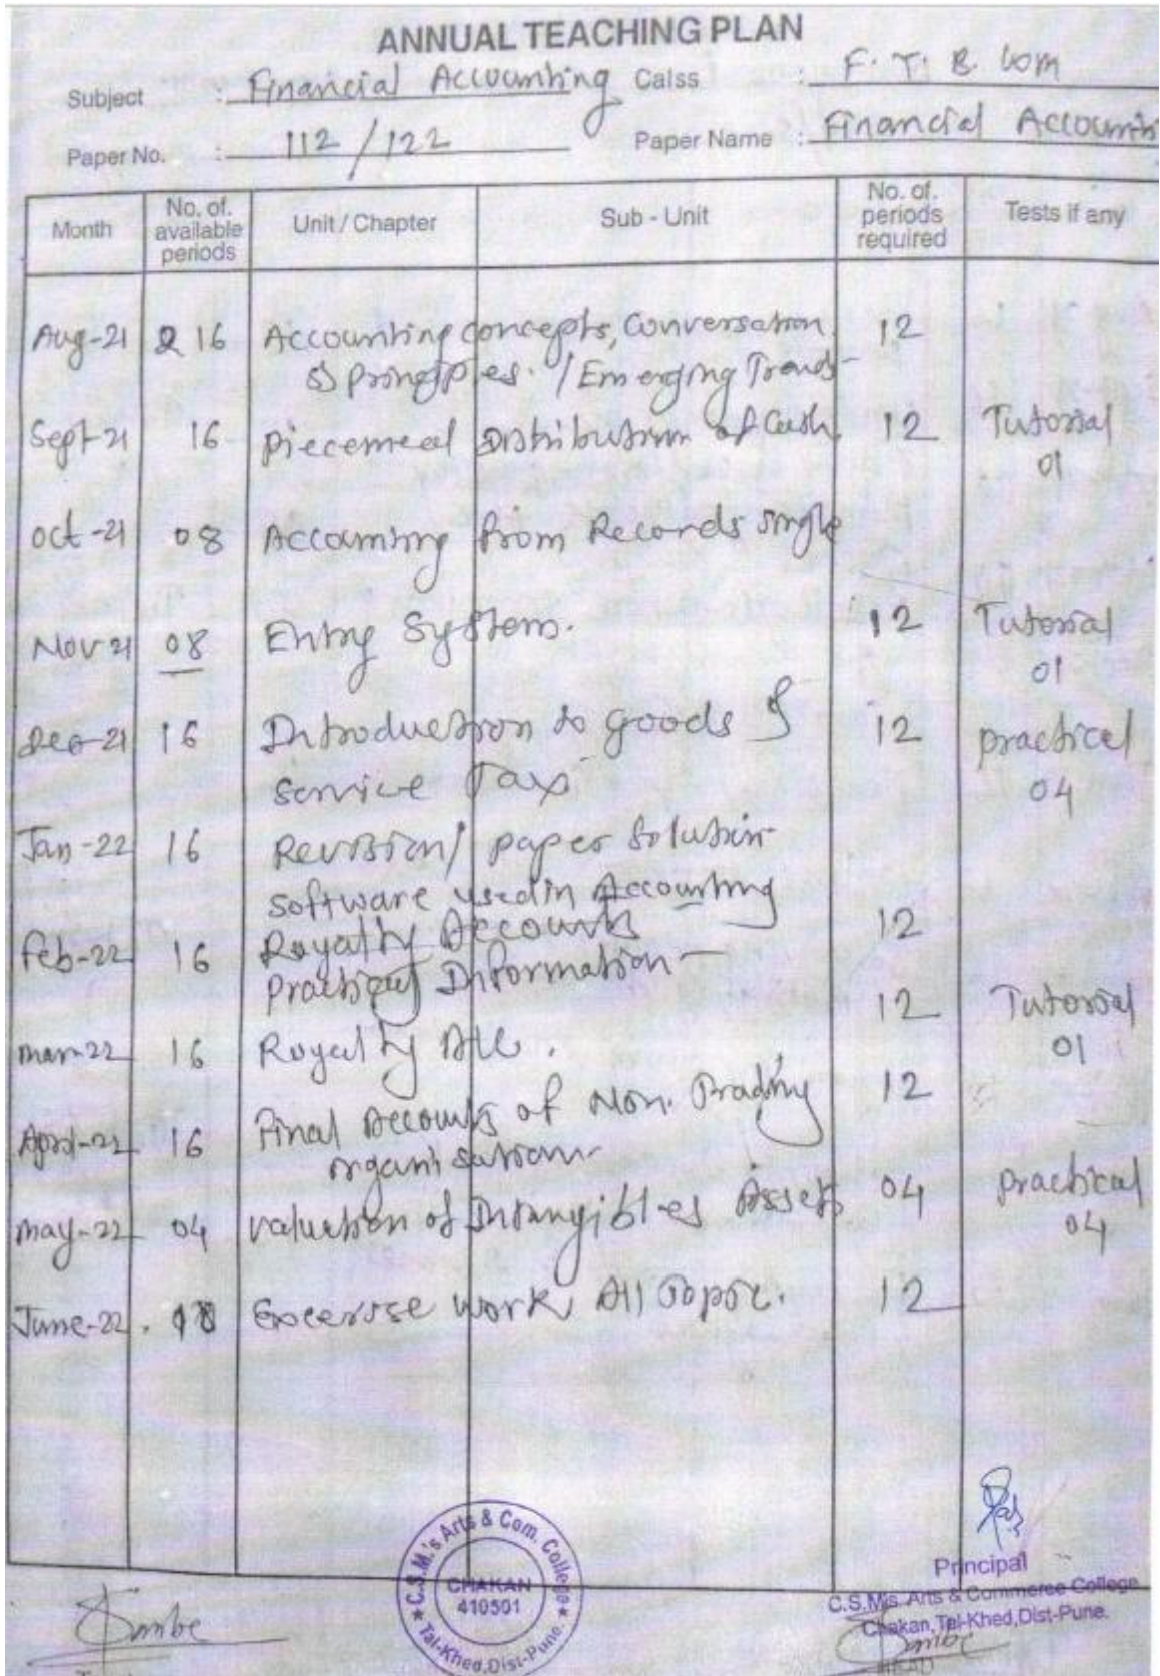 ANNUAL TEACHING PLAN
Subject : Financial Accounting Calss : F. Y. B. Com
Paper No. : 112 / 122 Paper Name : Financial Accountin
Month No. of. available periods Unit / Chapter Sub - Unit No. of. periods required Tests if any
Aug-21 16 Accounting concepts, Conversation 12
Principles. / Emerging Trends
Sept-21 16 piecemeal Distribution of Cash 12 Tutorial
01
Oct-21 08 Accounting from Records single
Nov 21 08 Entry System. 12 Tutorial
01
Dec-21 16 Introduction to Goods & 12 practical
Service Tax 04
Jan-22 16 Revision/ paper Solution
Software used in Accounting
Feb-22 16 Royalty Accounts 12
Practical Information
12 Tutorial
Mar-22 16 Royalty A/c. 01
Final Accounts of Non. Trading 12
April-22 16 organisation
May-22 04 Valuation of Intangibles Assets 04 practical
04
June-22 Excersise work All 12
C.S.M.'s Arts & Com. College
CHAKAN
410501
Tal-Khed, Dist-Pune.
Principal
C.S.M's Arts & Commerce College
Chakan, Tal-Khed, Dist-Pune.